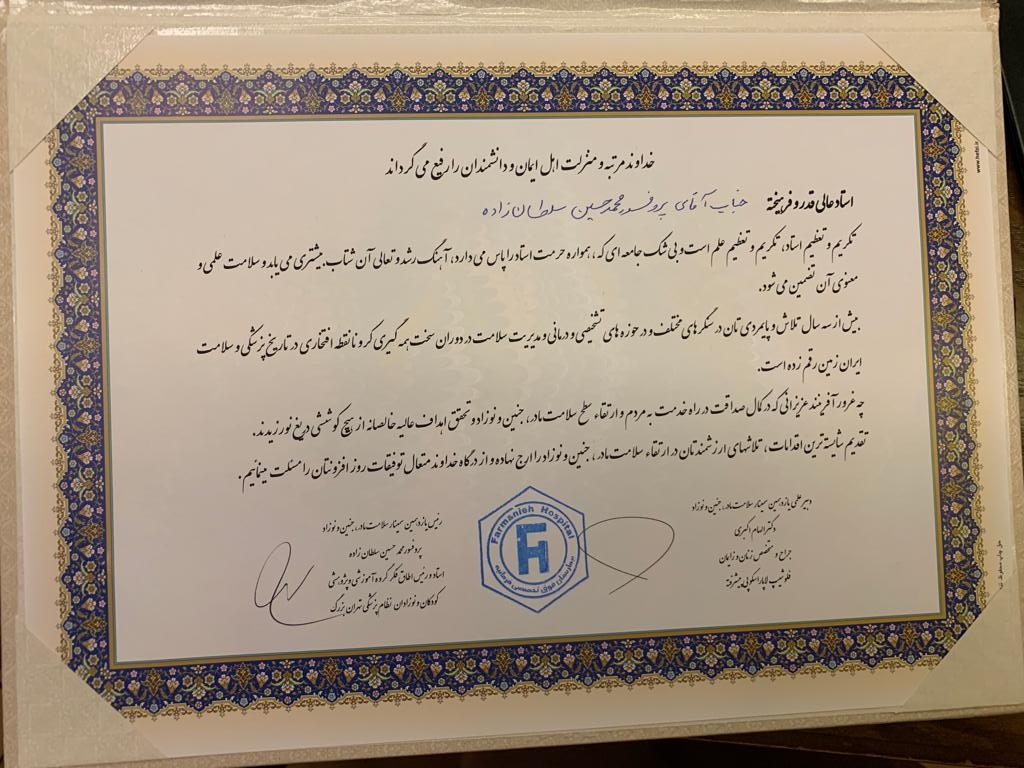 خداوند مرتبه و منزلت اهل ایمان و دانشمندان را رفیع می گرداند
استاد عالی قدر و فرهیخته جناب آقای پروفسور محمدحسین سلطان زاده
تکریم و تعظیم استاد، تکریم و تعظیم علم است و بی شک جامعه ای که، همواره حرمت استاد را پاس می دارد، آهنگ رشد و تعالی آن شتاب بیشتری می یابد و سلامت علمی و
معنوی آن تضمین می شود.
بیش از سه سال تلاش و پایمردی تان در سنگرهای مختلف و در حوزه های تشخیصی و درمانی و مدیریت سلامت در دوران سخت همه گیری کرونا نقطه افتخاری در تاریخ پزشکی و سلامت
ایران زمین رقم زده است.
چه غرور آفرینند عزیزانی که در کمال صداقت در راه خدمت به مردم و ارتقاء سطح سلامت مادر، جنین و نوزاد و تحقق اهداف عالیه خالصانه از هیچ کوششی دریغ نورزیدند.
تقدیم شایسته ترین اقدامات، تلاشهای ارزشمندتان در ارتقاء سلامت مادر، جنین و نوزاد را ارج نهاده و از درگاه خداوند متعال توفیقات روز افزونتان را مسئلت مینمائیم.
دبیر علمی یازدهمین سمینار سلامت مادر، جنین و نوزاد
دکتر الهام اکبری
جراح و متخصص زنان و زایمان
فلوشیپ لاپاراسکوپی پیشرفته
Farmanieh Hospital
FH
بیمارستان فوق تخصصی فرمانیه
رئیس یازدهمین سمینار سلامت مادر، جنین و نوزاد
پروفسور محمد حسین سلطان زاده
استاد و رئیس اطاق فکر گروه آموزشی و پژوهشی
کودکان و نوزادان نظام پزشکی تهران بزرگ